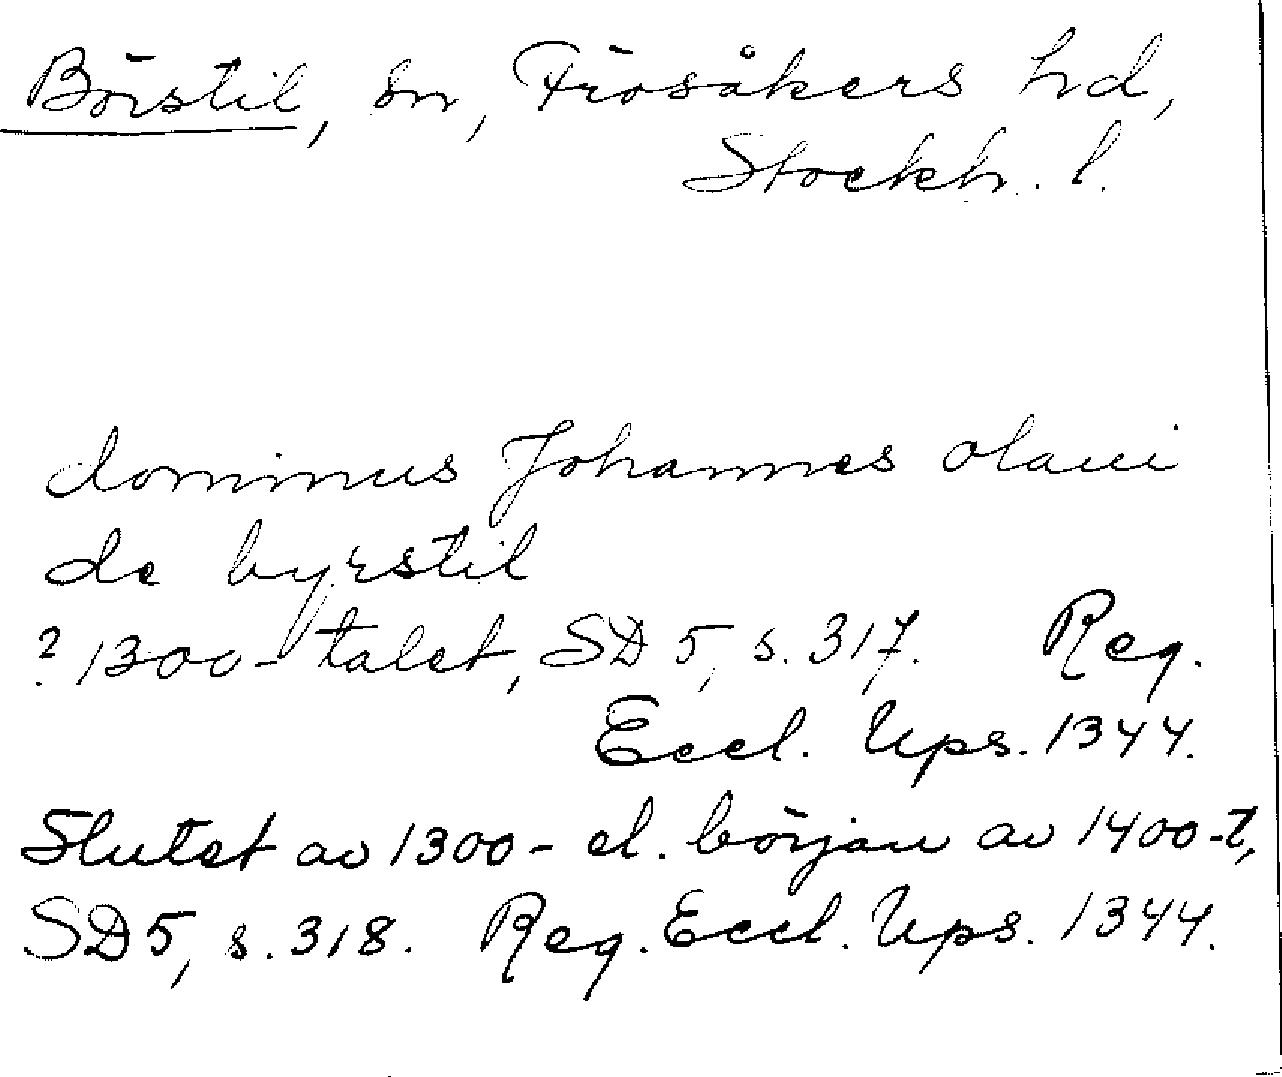 Börstil, sn, Frösåkers hd,
Stockh. l.
dominus Johannes olaui
de byrstil
? 1300-talet, SD 5, s. 317. Reg.
Eccl. Ups. 1344.
Slutet av 1300- el. början av 1400-t,
SD 5, s. 318. Reg. Eccl. Ups. 1344.